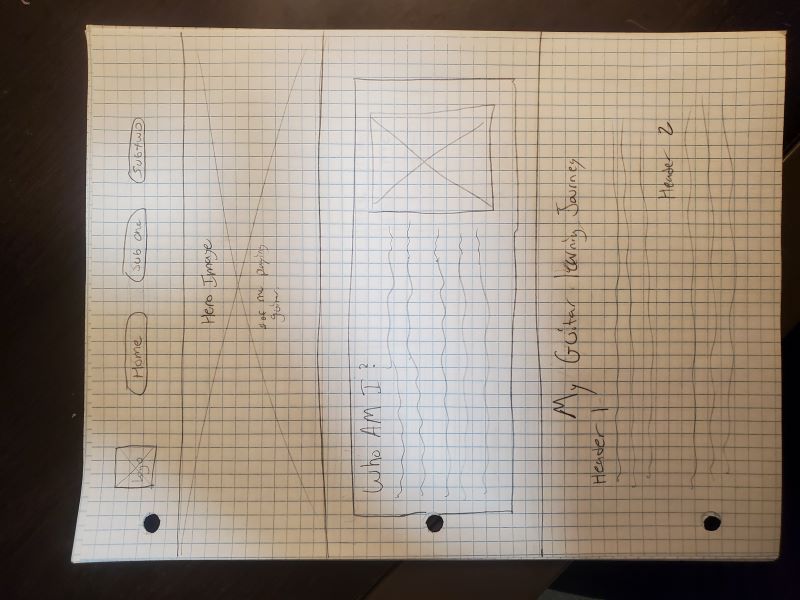 Logo
Home
Sub one
Sub two
Hero Image
of me playing
guitar.
Who AM I?
My Guitar learning Journey
Header 1
Header 2